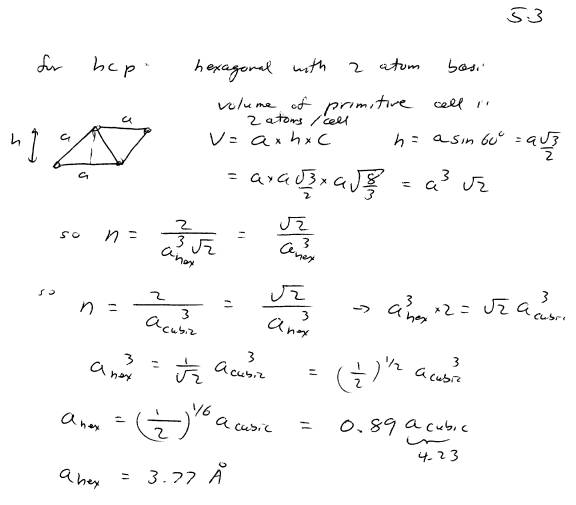 53
for hcp: hexagonal with 2 atom basis
volume of primitive cell is
2 atoms/cell
a
h a
a
V = a × h × c h = a sin 60° = a √3/2
= a × a √3/2 × a √(8/3) = a³ √2
so n = 2/(a_hex³ √2) = √2/a_hex³
so n = 2/a_cubic³ = √2/a_hex³ → a_hex³ × 2 = √2 a_cubic³
a_hex³ = 1/√2 a_cubic³ = (1/2)^1/2 a_cubic³
a_hex = (1/2)^1/6 a_cubic = 0.89 a_cubic
4.23
a_hex = 3.77 Å